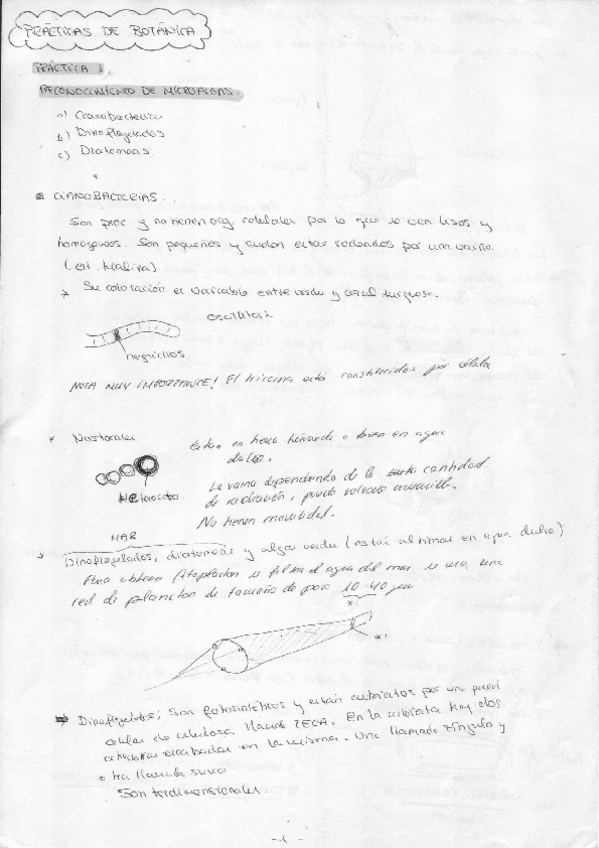 PRÁCTICAS DE BOTÁNICA
PRÁCTICA 1
RECONOCIMIENTO DE MICROALGAS.
a) Cianobacterias
b) Dinoflagelados
c) Diatomeas.
CIANOBACTERIAS.
Son proc. y no tienen org. celulares por lo que se ven lisos y
homogéneos. Son pequeños y suelen estar rodeados por una vaina
* Su coloración es variable entre verde y azul turquesa.
negridios.
NOTA MUY IMPORTANTE! El tricoma está constituidos por célula
* Nostocales
en agua
dulce.
La vaina dependiendo de la cantidad
de radiación, puede volverse amarilla.
No tienen movilidad.
Heterocito
MAR
* Dinoflagelados, diatomeas y algas verdes (estas últimas en agua dulce)
Para obtener fitoplacton se filtra el agua del mar se usa una
red de plancton de tamaño de poro 10-40 µm
Dinoflagelados; Son fotosintéticos y están cubiertos por una pared
celular de celulosa llamada TECA. En la cubierta hay dos
en la misma. Una llamada zíngulo y
otra llamada surco
Son tridimensionales.
-1-